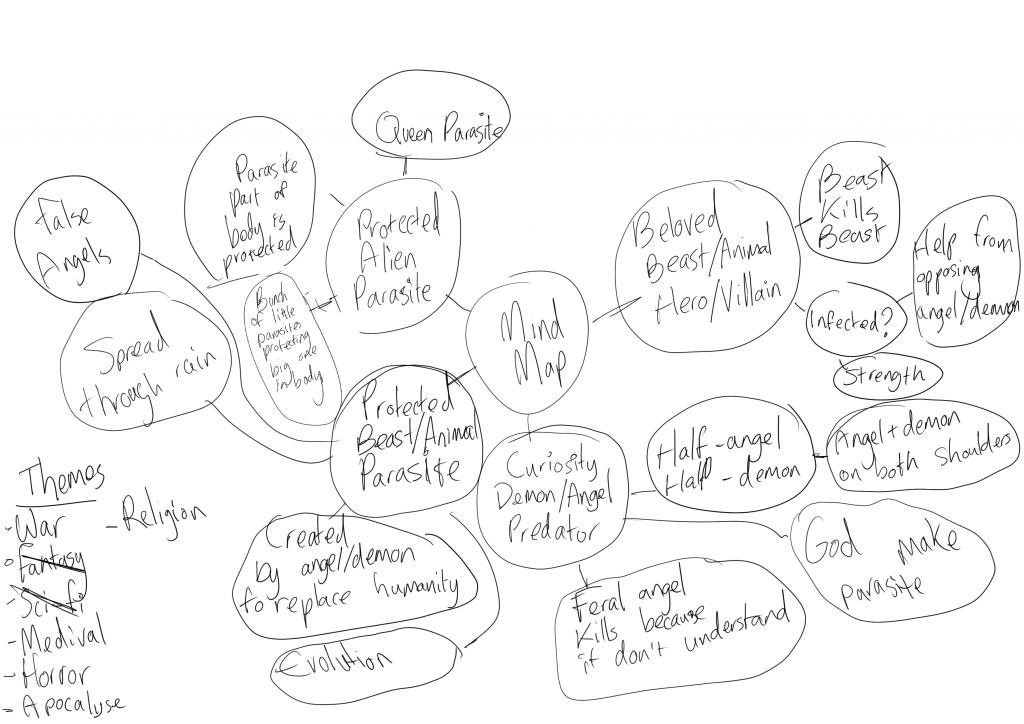 Queen Parasite
Parasite
part of
body is
protected
False
Angels
Protected
Alien
Parasite
Beloved
Beast/Animal
Hero/Villain
Beast
Kills
Beast
Help from
opposing
angel/demon
Infected?
Strength
Bunch
of little
parasites
protecting
big one
in body
Mind
Map
Spread
through rain
Protected
Beast/Animal
Parasite
Curiosity
Demon/Angel
Predator
Half-angel
Half-demon
Angel+demon
on both shoulders
God make
parasite
Created
by angel/demon
to replace humanity
Evolution
Feral angel
Kills because
it don't understand
Themes
-War
-Religion
Fantasy
-Sci-fi
-Medival
-Horror
-Apocalyse